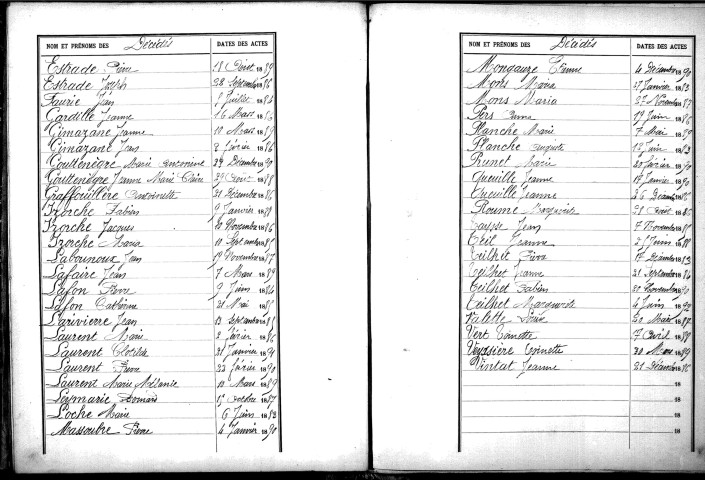 NOM ET PRÉNOMS DES Décédés DATES DES ACTES
Estrade Pierre 18 Août 1889
Estrade Joseph 28 Septembre 1886
Faurie Jean Juillet 1884
Gardille Jeanne 16 Mars
Gimazane Jeanne 10 Mars 1889
Gimazane Jean 2 Février 1886
Gouttenègre Marie Antoinine 29 Décembre 1890
Gouttenègre Jeanne Marie Claire 29 Août 1888
Graffouillère Antoinette 31 Décembre 1886
Izorche Fabien 6 Janvier 1889
Izorche Jacques 10 Novembre 1886
Izorche Maria 11 Septembre 188
Labounoux Jean 19 Novembre 1887
Lafaire Jean 7 Mars 1889
Lafon Pierre 9 Juin 1884
Lafon Catherine 21 Mai 188
Larivierre Jean 13 Septembre 188
Laurent Marie 2 Février 1886
Laurent Clotilde 21 Janvier 189
Laurent Pierre 23 Février 1890
Laurent Marie Mélanie 10 Mars 1889
Leymarie Romain 1er Octobre 1887
Loche Marie 6 Juin 1883
Massoubre Pierre 4 Janvier 1890
NOM ET PRÉNOMS DES Décédés DATES DES ACTES
Mongauze Etienne 4 Décembre 1890
Mons Maria 27 Janvier 1883
Mons Maria 27 Novembre 1883
Pers Anna 19 Juin 1886
Planche Marie 7 Mai 1889
Planche Auguste 12 Juin 1883
Prunet Marie 20 Février 1890
Queuille Jeanne 17 Janvier 1890
Queuille Jeanne 26 Décembre 1886
Roume Marguerite 31 Août 1886
Tayss Jean 7 Novembre 188
Teil Jeanne 2 Juin 1888
Teilhet Pierre 17 Décembre 1883
Teilhet Jeanne 21 Septembre 1884
Teilhet Fabien 20 Novembre 1890
Teilhet Marguerite 4 Juin 1890
Valette Louise 20 Mars 1887
Vert Toinette 17 Avril 1889
Veyssiere Toinette 30 Mars 1889
Vintat Jeanne 21 Décembre 1886
18
18
18
18